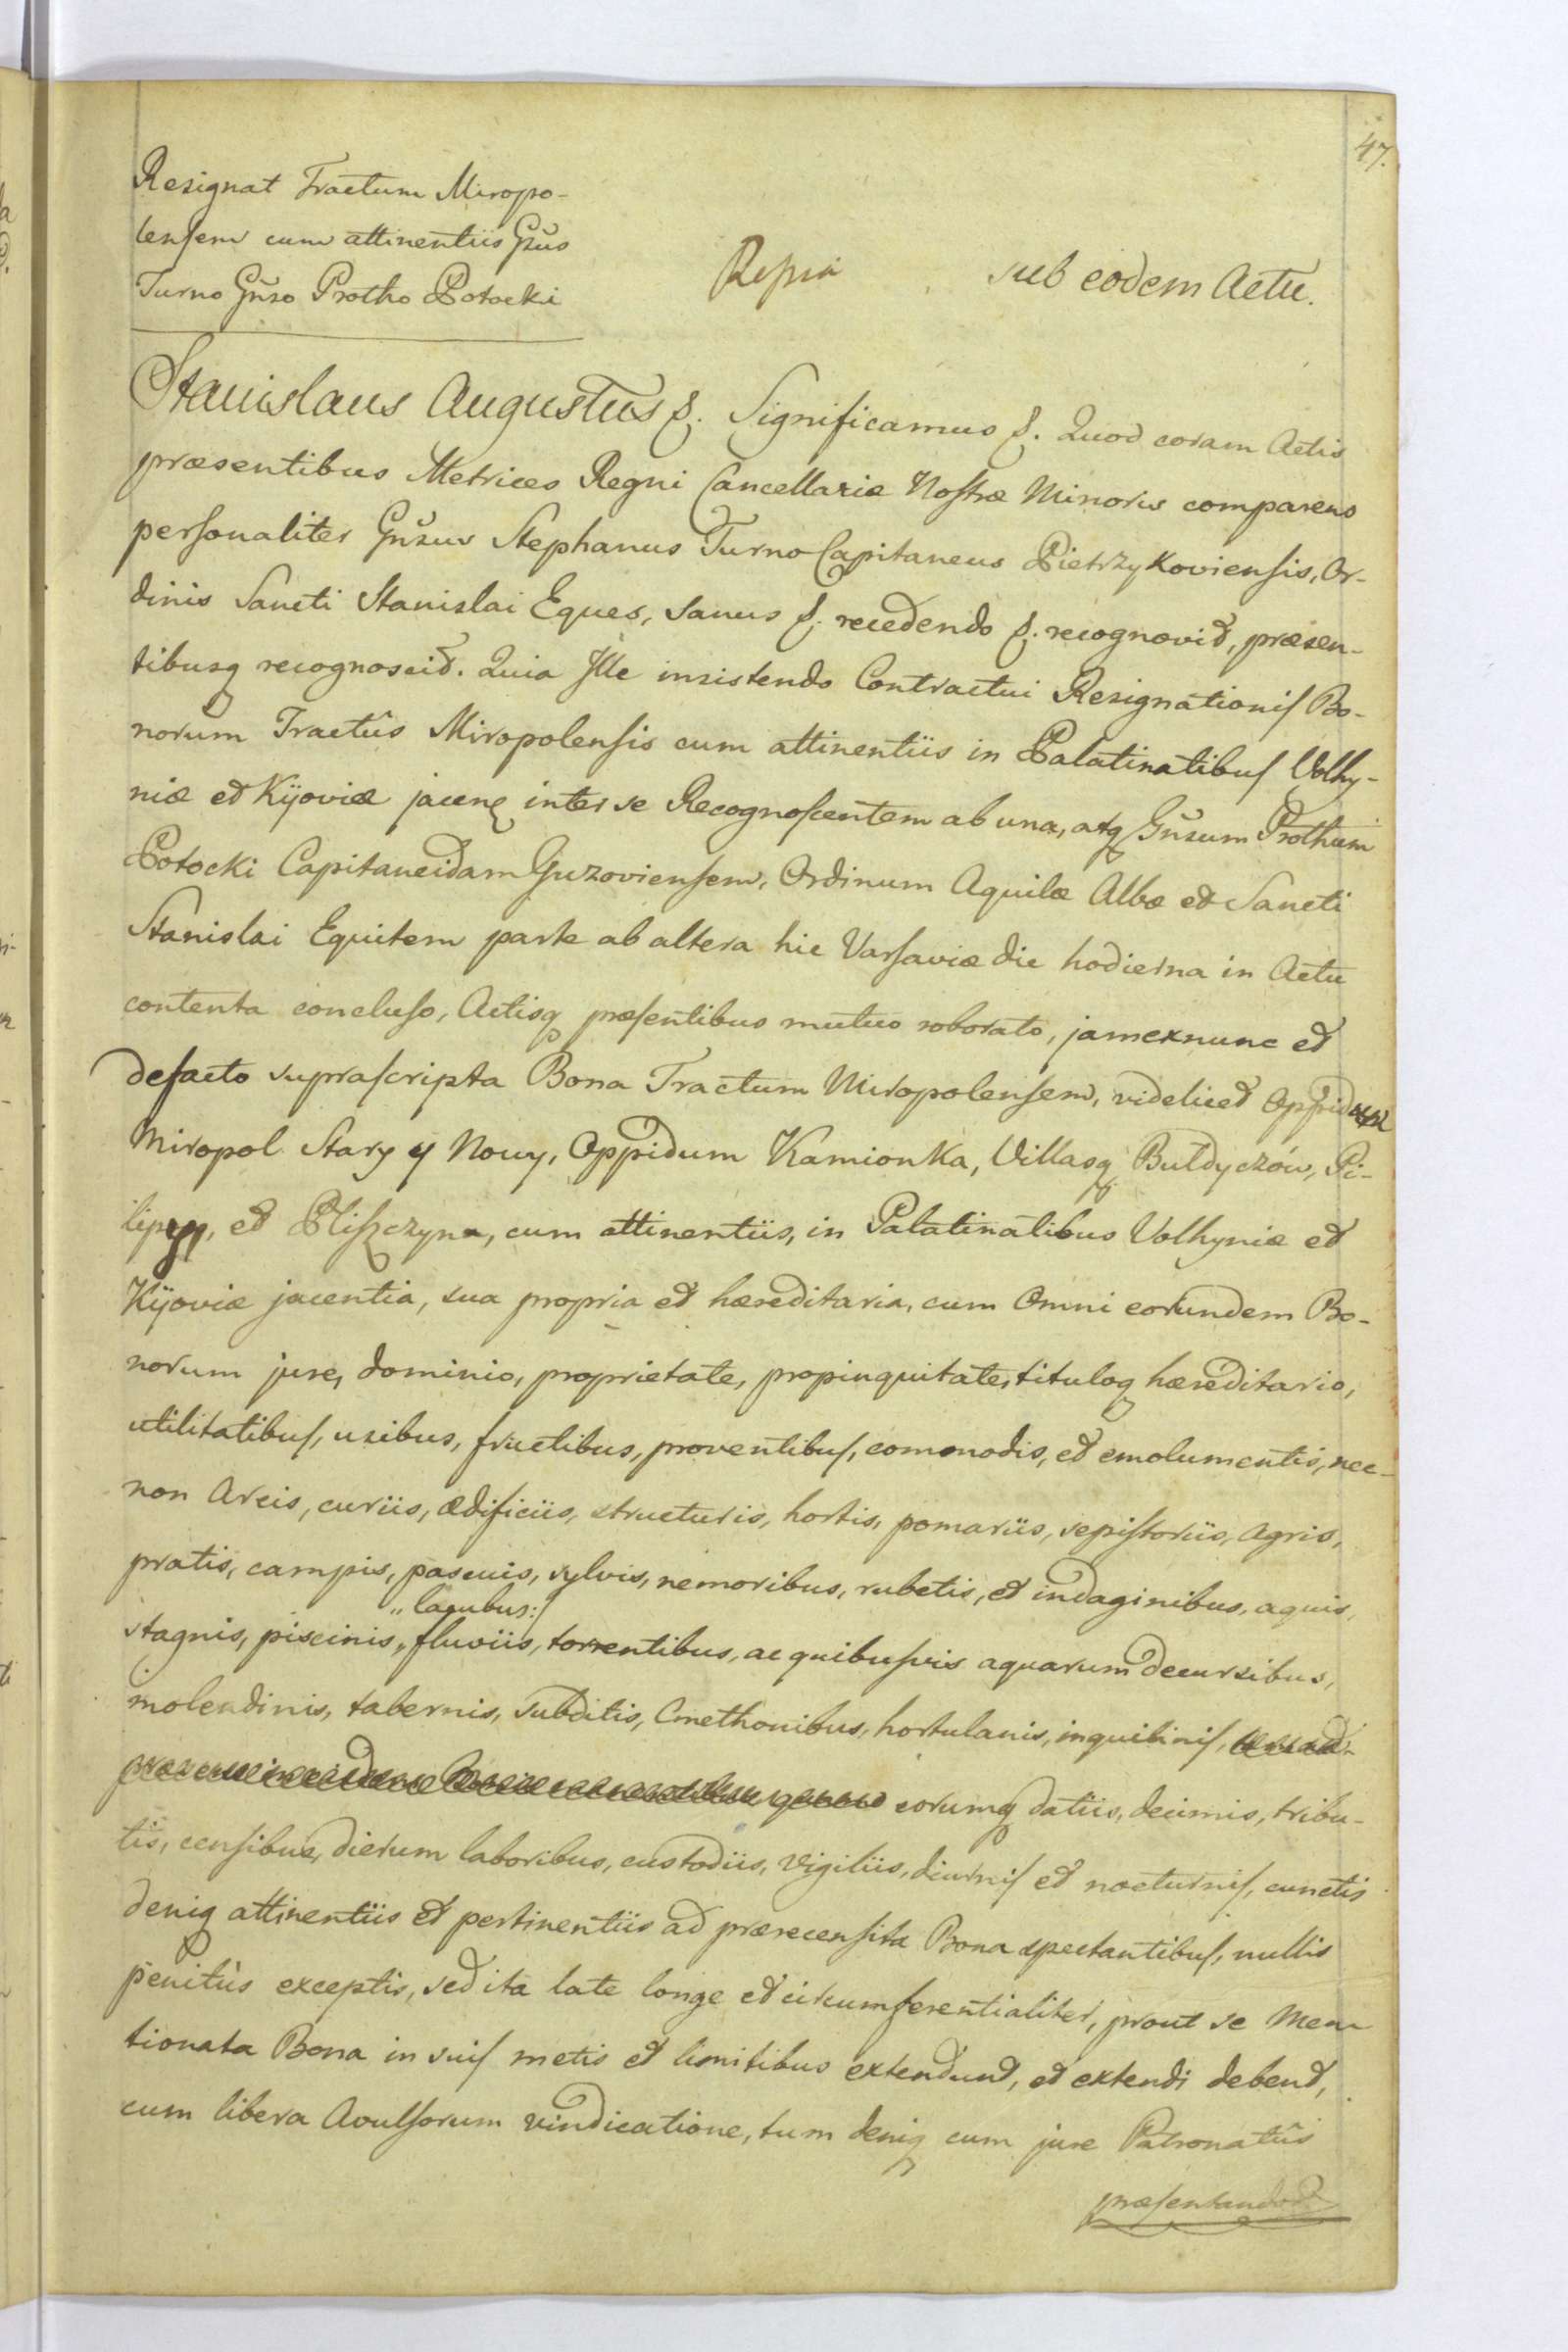 47.
Resignat Tractum Miropo-
lensem cum attinentiis Gñsus
Turno Gñso Protho Potocki
sub eodem Actu.
Stanislaus Augustus &. Significamus &. Quod coram Actis
præsentibus Metrices Regni Cancellariæ Nostræ Minoris comparens
personaliter Gñsus Stephanus Turno Capitaneus Pietrzykoviensis, Or-
dinis Sancti Stanislai Eques, sanus &. recedendo &. recognovit, præsen-
tibusq recognoscit. Quia Ille insistendo Contractui Resignationis Bo-
norum Tractûs Miropolensis cum attinentiis in Palatinatibus Volhy-
niæ et Kijoviæ jacenȩ inter se Recognoscentem ab una, atq Gñsum Prothum
Potocki Capitaneidam Guzoviensem, Ordinum Aquilæ Albæ et Sancti
Stanislai Equitem parte ab altera hic Varsaviæ die hodierna in Actu
contenta concluso, Actisq præsentibus mutuo roborato, jamexnunc et
defacto suprascripta Bona Tractum Miropolensem, videlicet Oppidum
Miropol Stary y Nowy, Oppidum Kamionka, Villasq Bułdyczów, Pi-
lipy, et Pliszczyna, cum attinentiis, in Palatinatibus Volhyniæ et
Kijoviæ jacentia, sua propria et hæreditaria, cum Omni eorundem Bo-
norum jure, dominio, proprietate, propinquitate, tituloq hæreditario,
utilitatibus, usibus, fructibus, proventibus, commodis, et emolumentis, nec-
non Arcis, curiis, ædificiis, structuris, hortis, pomariis, sepistoriis, Agris,
pratis, campis, pascuis, sylvis, nemoribus, rubetis, et indaginibus, aquis,
„lacubus:/
stagnis, piscinis „ fluviis, torrentibus, ac quibusvis aquarum decursibus,
molendinis, tabernis, subditis, Cmethonibus, hortulanis, inquilinis,
eorumq datiis, decimis, tribu-
tis, censibus, dierum laboribus, custodiis, vigiliis, diurnis et nocturnis, cunctis
deniq attinentiis et pertinentiis ad præcensita Bona spectantibus, nullis
penitùs exceptis, sed ita late longe et circumferentialiter, prout se Men-
tionata Bona in suis metis et limitibus extendunt, et extendi debent,
cum libera Avulsorum vindicatione, tum deniq cum jure Patronatûs
præsentandod